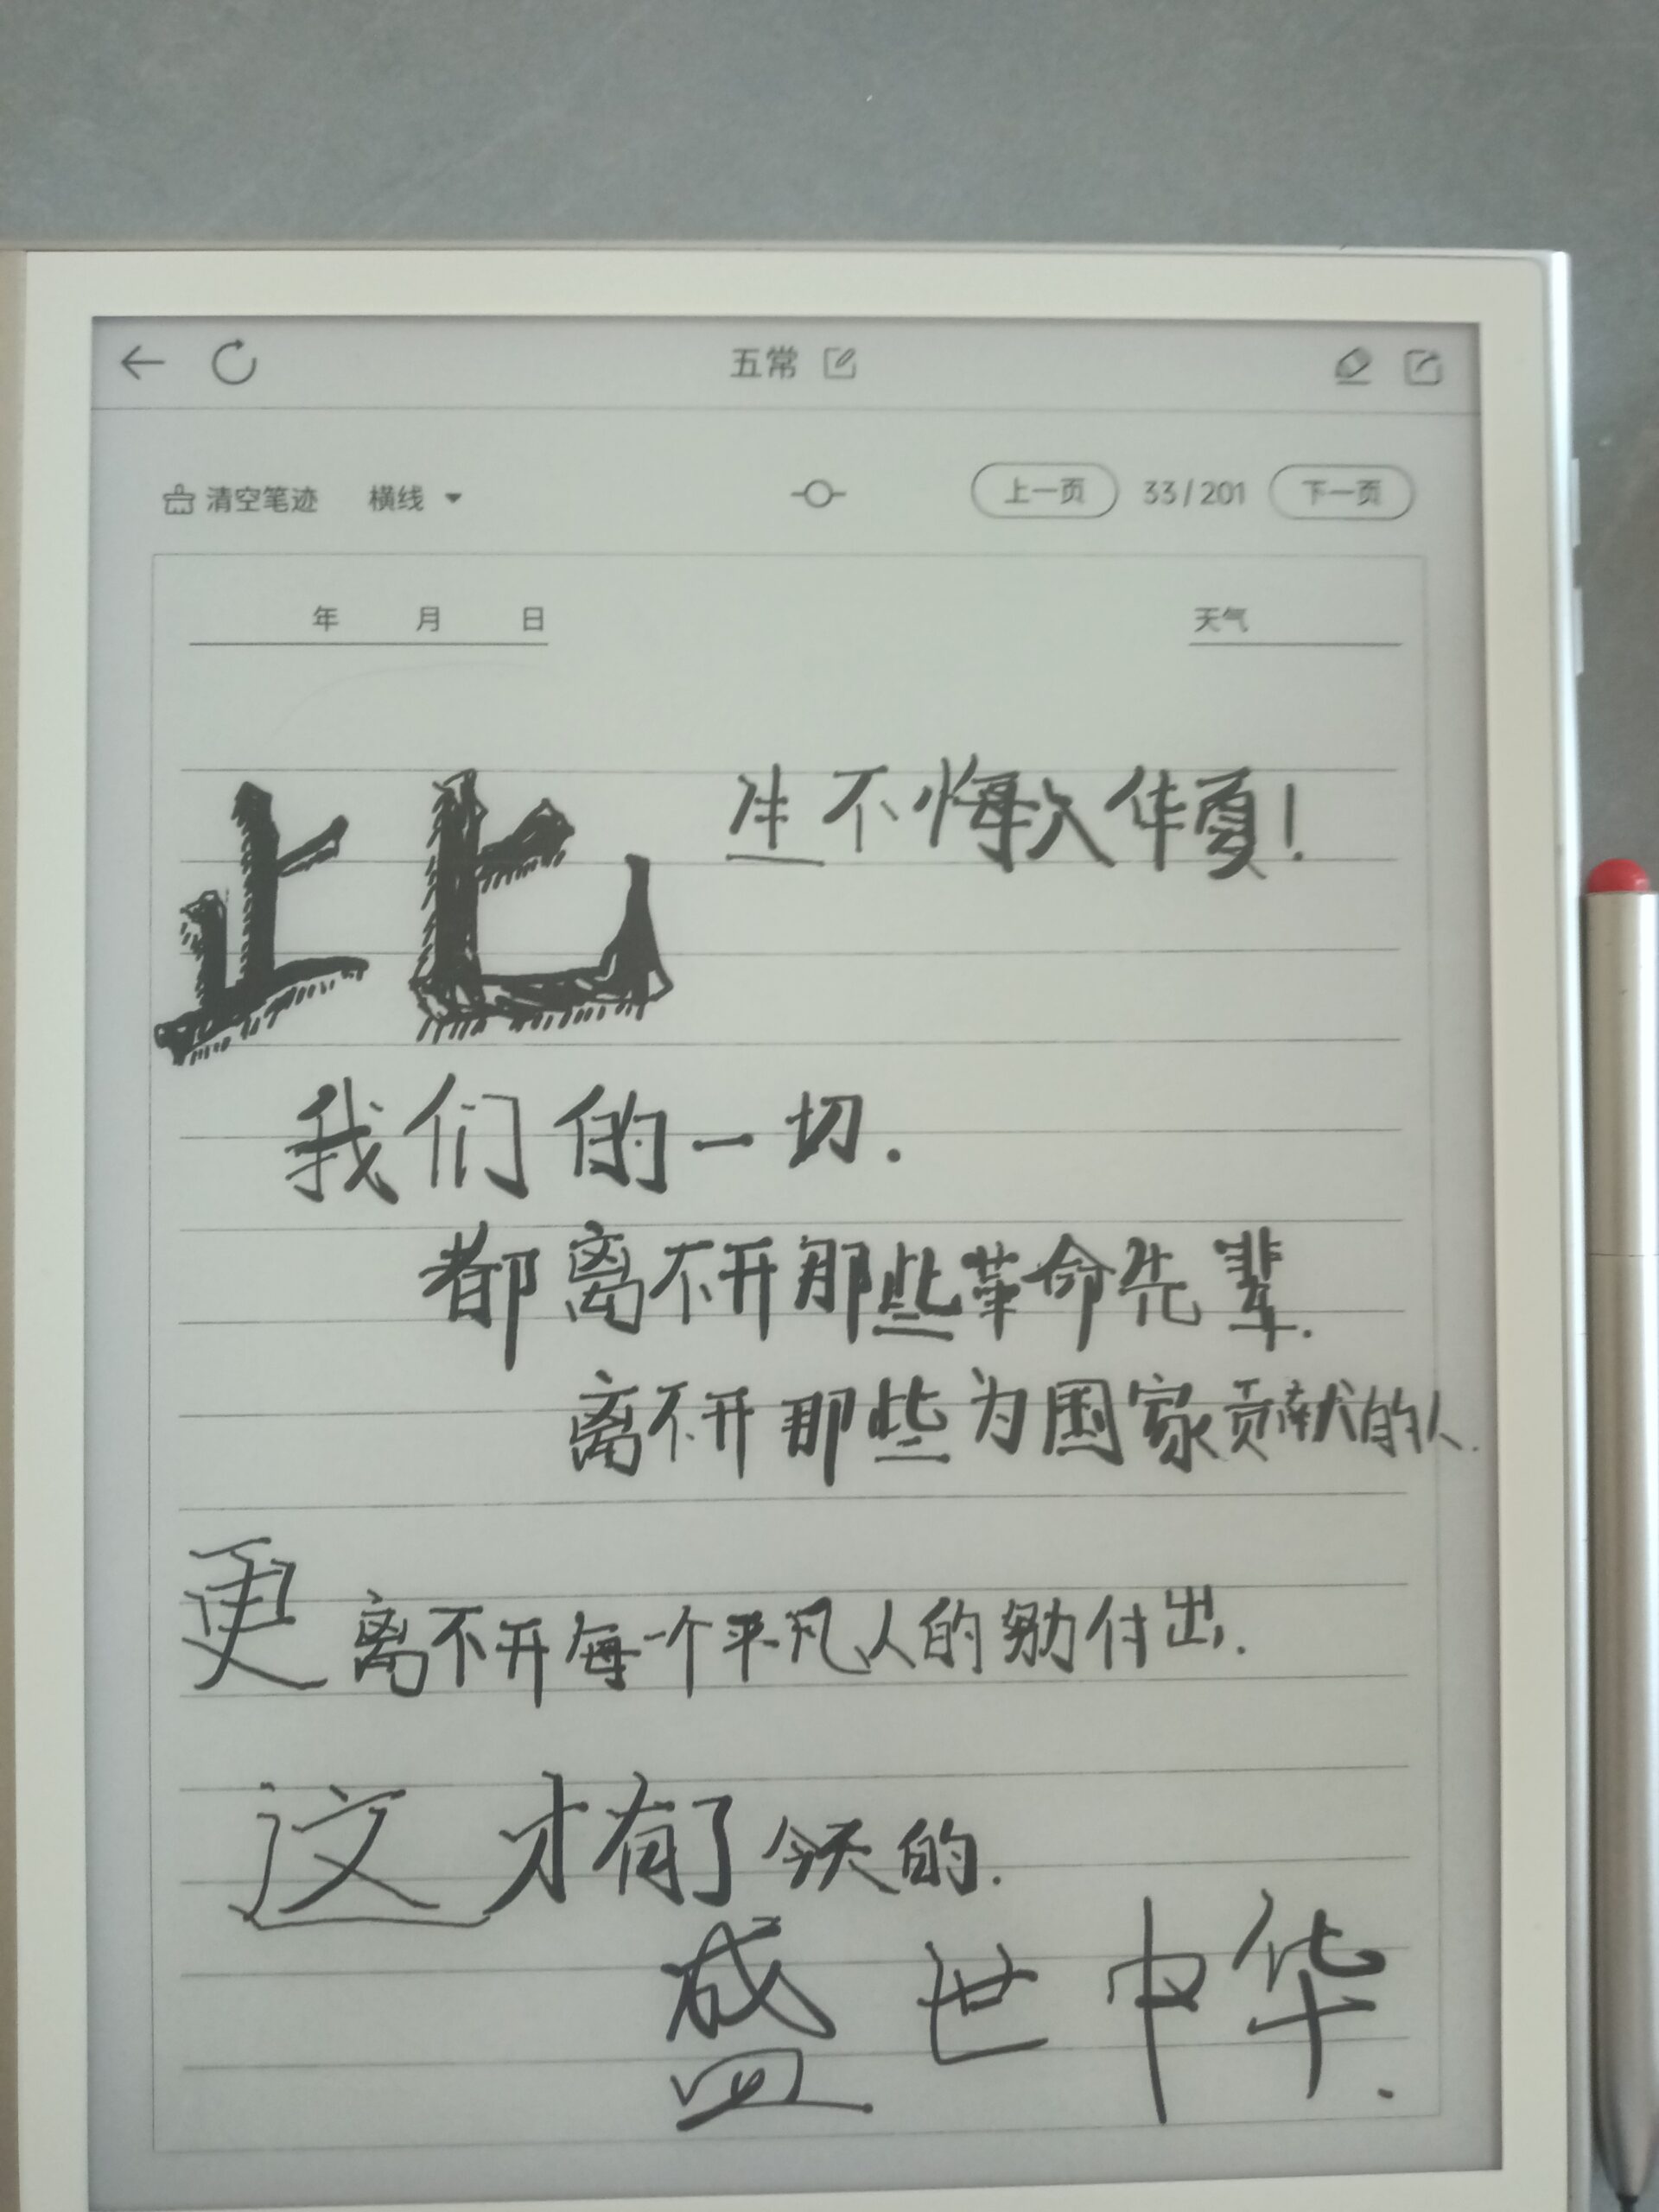 五常
清空笔迹 横线 上一页 33/201 下一页
年 月 日 天气
此生不悔入华夏!
我们的一切.
都离不开那些革命先辈.
离不开那些为国家贡献的人.
更离不开每一个平凡人的努力付出.
这才有了今天的.
盛世中华.